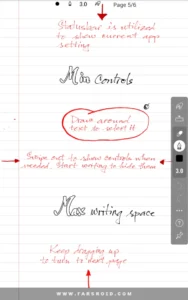 3.0
Page 5/6
Statusbar is utilized
to show current app
setting
Min Controls
Draw around
text to select it
Swipe out to show controls when
needed. Start writing to hide them
3.0
Max writing space
Keep dragging up
to turn to next page
WWW.FARSROID.COM